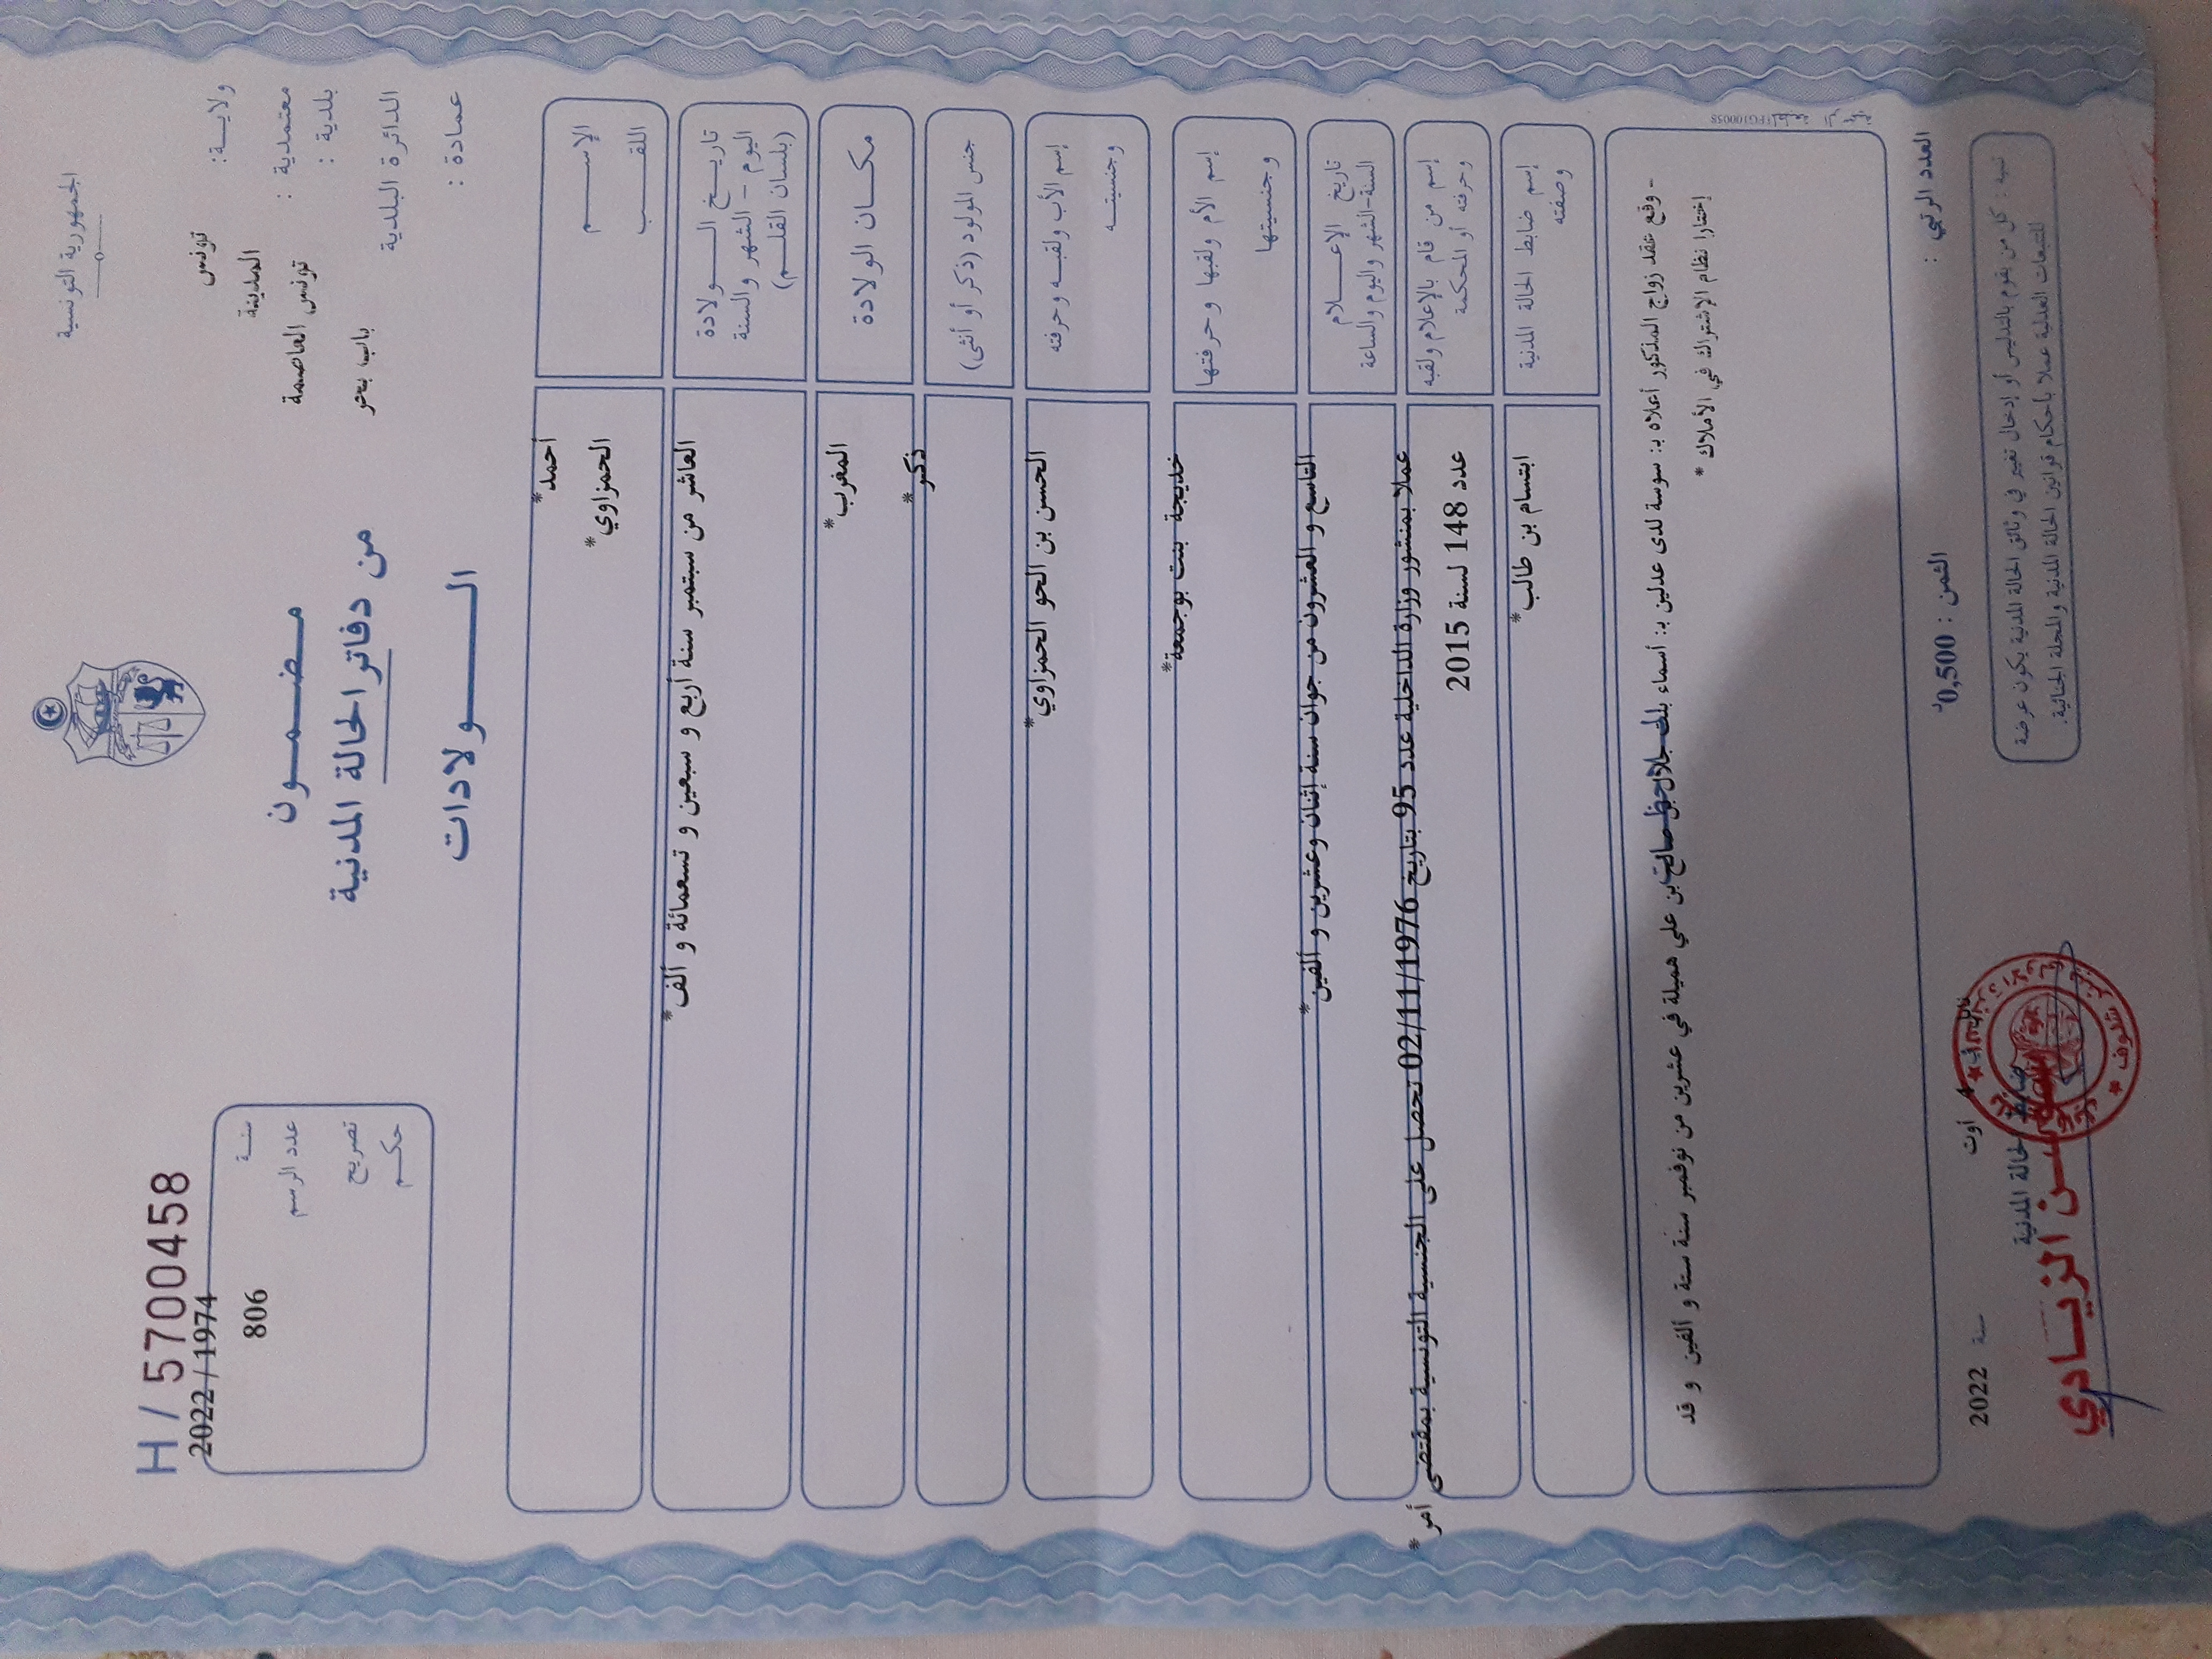 الجمهورية التونسية
ولاية: تونس
معتمدية : المدينة
بلدية : تونس العاصمة
الدائرة البلدية باب بحر
عمادة :
مضمون
من دفاتر الحالة المدنية
الولادات
H / 5700458
2022 / 1974
سنة
عدد الرسم 806
تصريح
حكم
الإسم أحمد*
اللقب الحمزاوي*
تاريخ الولادة
اليوم - الشهر والسنة
(بلسان القلم)
العاشر من سبتمبر سنة أربع و سبعين و تسعمائة و ألف*
مكان الولادة المغرب*
جنس المولود (ذكر أو أنثى) ذكر*
إسم الأب ولقبه وحرفته
وجنسيته
الحسن بن الحو الحمزاوي*
إسم الأم ولقبها وحرفتها
وجنسيتها
خديجة بنت بوجمعة*
تاريخ الإعلام
السنة-الشهر واليوم والساعة
التاسع و العشرون من جوان سنة إثنان وعشرين و ألفين*
إسم من قام بالإعلام ولقبه
وحرفته أو المحكمة
عملا بمنشور وزارة الداخلية عدد 95 بتاريخ 02/11/1976 تحصل على الجنسية التونسية بمقتضى أمر*
عدد 148 لسنة 2015
إسم ضابط الحالة المدنية
وصفته
ابتسام بن طالب*
- وقع عقد زواج المذكور أعلاه بـ: سوسة لدى عدلين بـ: أسماء بنت جلال بن صالح بن علي هميلة في عشرين من نوفمبر سنة ستة و الفين و قد
إختارا نظام الإشتراك في الأملاك *
العدد الرتبي :
الثمن : 0,500د
أوت سنة 2022
تنبيه : كل من يقوم بالتدليس أو إدخال تغيير في وثائق الحالة المدنية يكون عرضة
للتتبعات العدلية عملا بأحكام قوانين الحالة المدنية والمجلة الجنائية.
ضابط الحالة المدنية
سوسن الزيادي